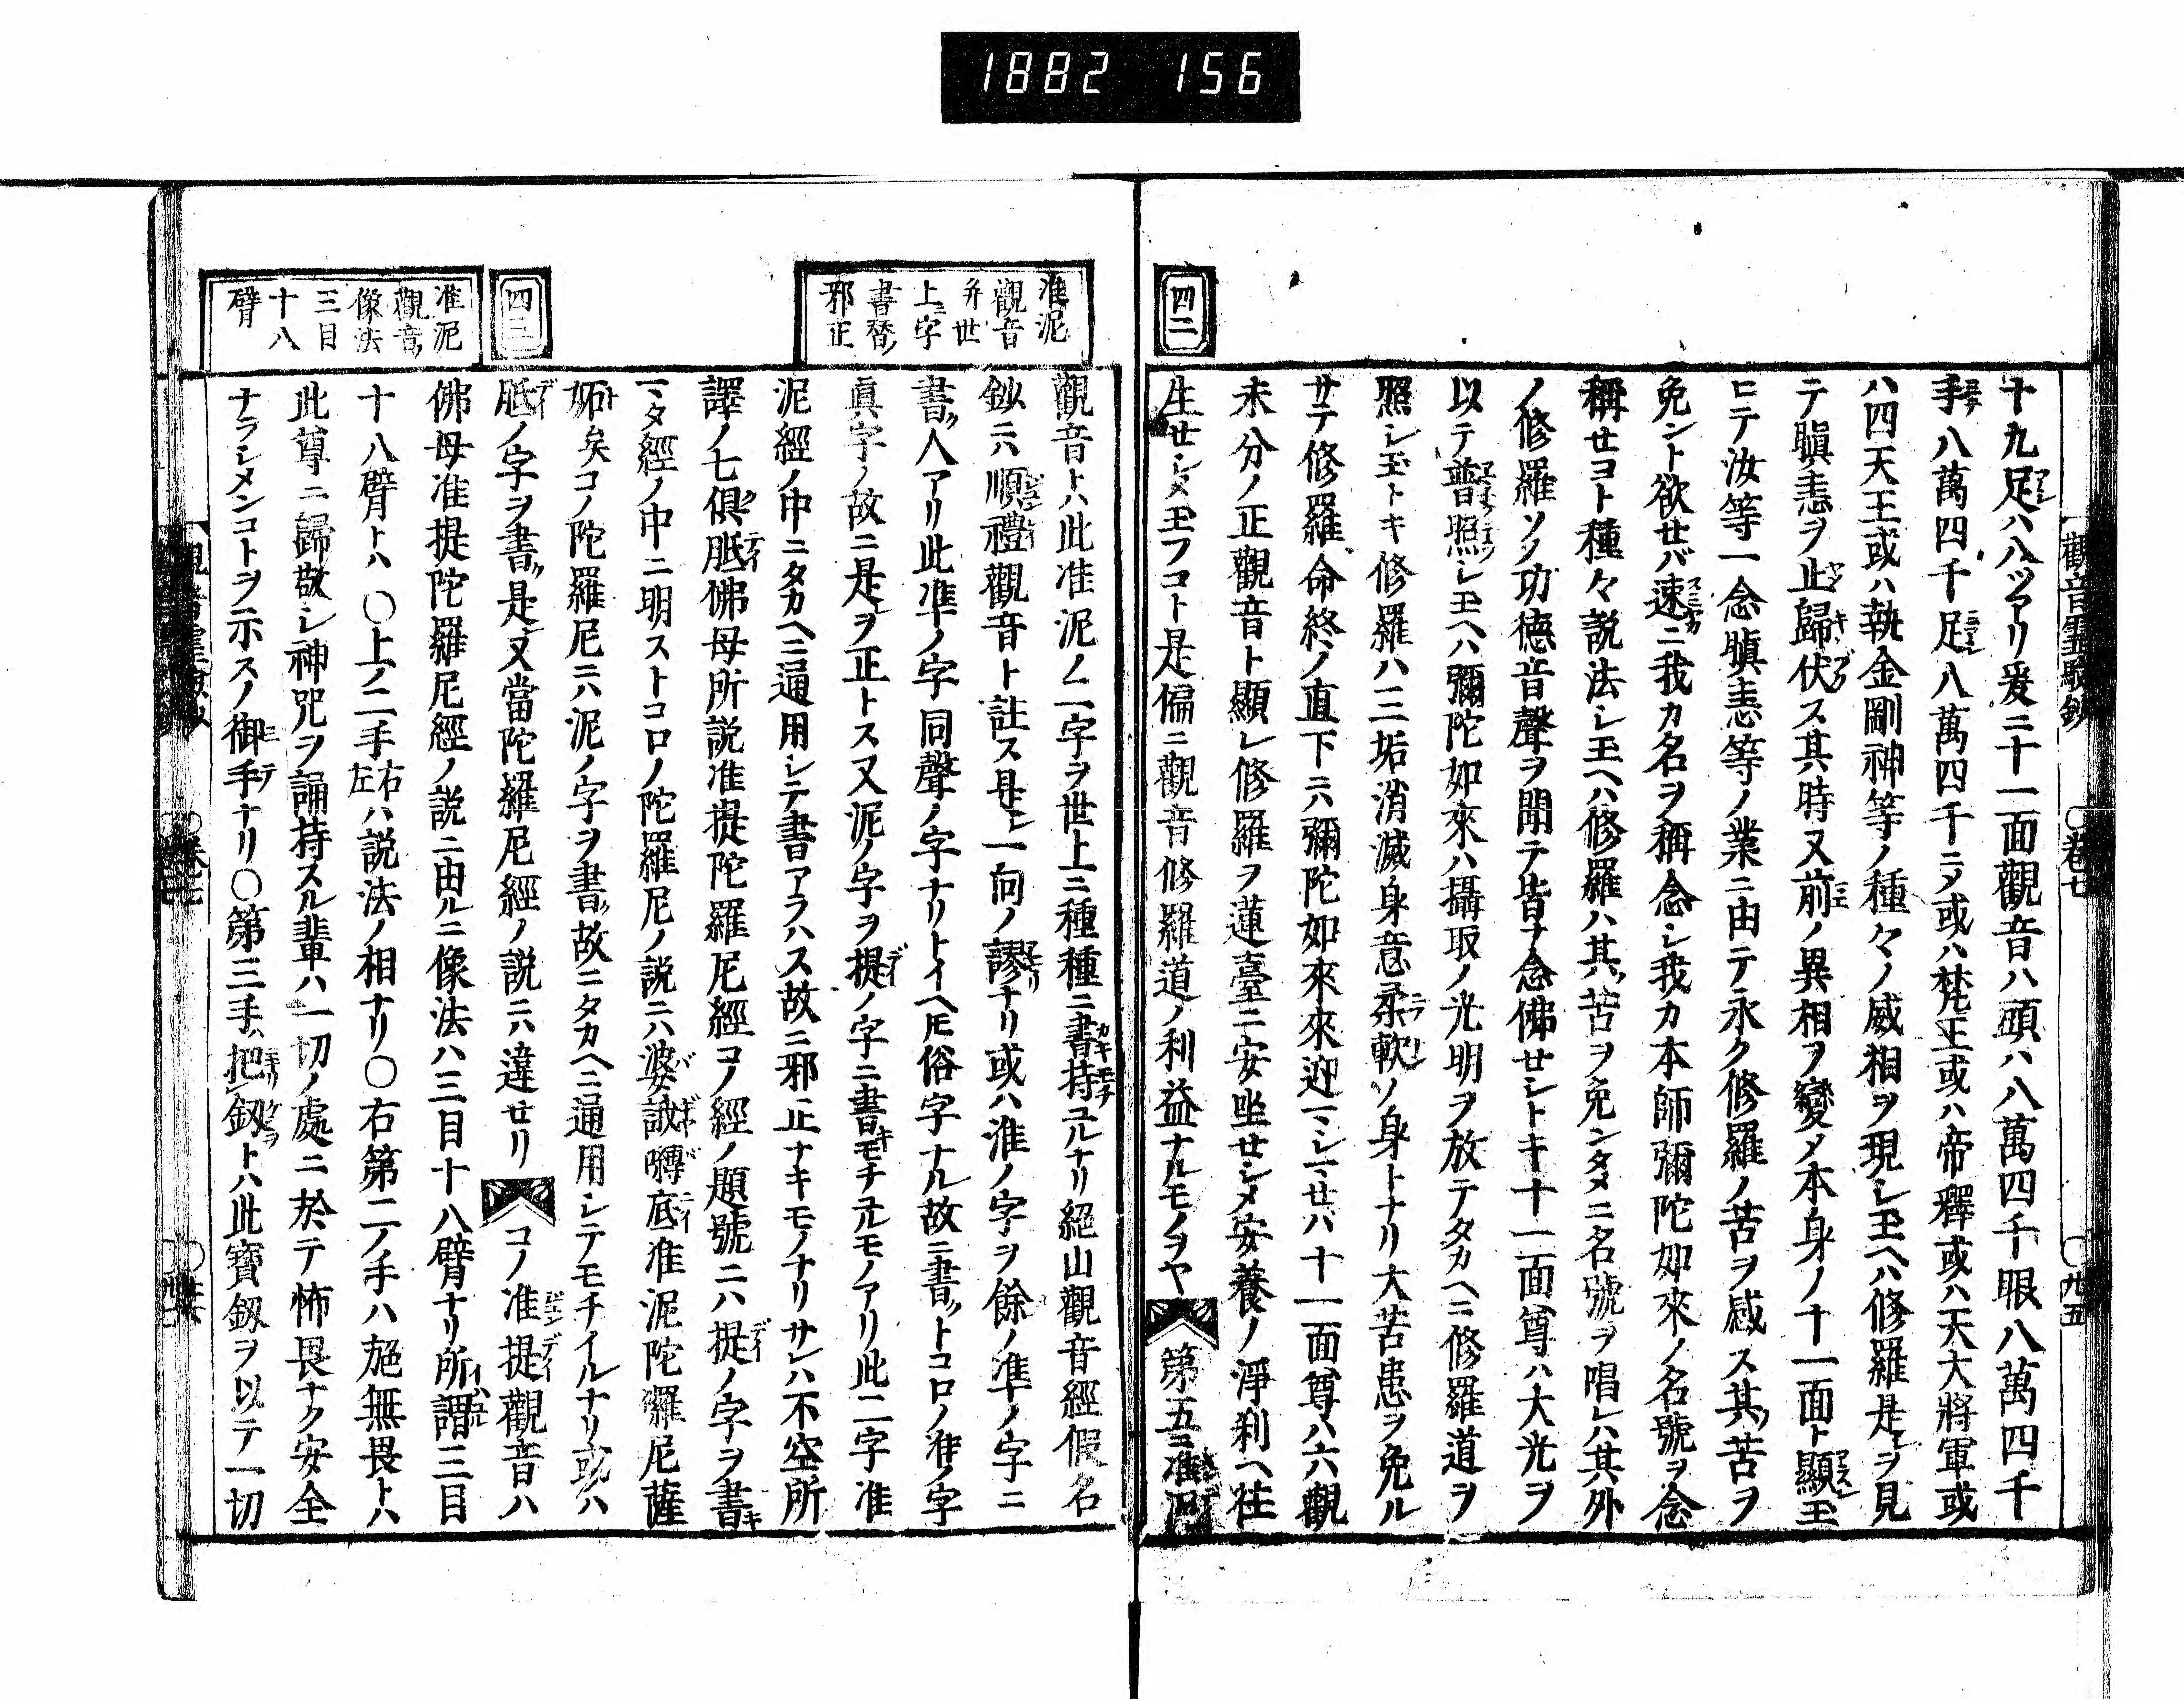 1882 156
觀音霊験鈔 ○巻七 ○九五
十九足ハ八ツアリ爰ニ十一面觀音ハ頭ハ八萬四千眼八萬四千
手八萬四千足八萬四千ニメ或ハ梵王或ハ帝釋或ハ天大將軍或
ハ四天王或ハ執金剛神等ノ種々ノ威相ヲ現シ玉ヘハ修羅是ヲ見
テ瞋恚ヲ止歸伏ス其時又前ノ異相ヲ變メ本身ノ十一面ト顯玉
ヒテ汝等一念瞋恚等ノ業ニ由テ永ク修羅ノ苦ヲ感ス其苦ヲ
免ント欲セバ速ニ我カ名ヲ稱念シ我カ本師彌陀如來ノ名號ヲ念
稱セヨト種々説法シ玉ヘハ修羅ハ其苦ヲ免ンタメニ名號ヲ唱レハ其外
ノ修羅ソノ功德音聲ヲ聞テ皆ナ念佛セシトキ十一面尊ハ大光ヲ
以テ普照シ玉ヘハ彌陀如來ハ攝取ノ光明ヲ放テタカヘニ修羅道ヲ
照シ玉トキ修羅ハ三垢消滅身意柔軟ソノ身トナリ大苦患ヲ免ル
サテ修羅命終ノ直下ニハ彌陀如來來迎マシマセハ十一面尊ハ六觀
未分ノ正觀音ト顯レ修羅ヲ蓮臺ニ安坐セシメ安養ノ淨刹ヘ往
生セシメ玉フコト是偏ニ觀音修羅道ノ利益ナルモノヲヤ 第五ニ准泥
四二
准泥
觀音
并世
上ニ字
書替ノ
邪正
觀音トハ此准泥ノ二字ヲ世上ニ種種ニ書持ユルナリ絕山觀音經假名
鈔ニハ順禮觀音ト註ス是レ一向ノ謬ナリ或ハ淮ノ字ヲ餘ノ準ノ字ニ
書ク人アリ此準ノ字同聲ノ字ナリトイヘ圧俗字ナル故ニ書クトコロノ准ノ字
眞字ノ故ニ是ヲ正トス又泥ノ字ヲ提ノ字ニ書モチユルモノアリ此二字准
泥經ノ中ニタカヘニ通用シテ書アラハス故ニ邪正ナキモノナリサレハ不空所
譯ノ七俱胝佛母所説准提陀羅尼經コノ經ノ題號ニハ提ノ字ヲ書キ
マタ經ノ中ニ明ストコロノ陀羅尼ノ説ニハ婆誐嚩底准泥陀羅尼薩
妬矣コノ陀羅尼ニハ泥ノ字ヲ書ク故ニタカヘニ通用シテモチイルナリ或ハ
胝ノ字ヲ書ク是又當陀羅尼經ノ説ニハ違セリ コノ准提觀音ハ
四三
佛母准提陀羅尼經ノ説ニ由ルニ像法ハ三目十八臂ナリ所謂三目
准泥
觀音ノ
像法
三目
十八
臂
十八臂トハ ○上ノ二手右左ハ説法ノ相ナリ○右第二ノ手ハ施無畏トハ
此尊ニ歸敬シ神咒ヲ誦持スル輩ハ一切ノ處ニ於テ怖畏ナク安全
ナラシメンコトヲ示スノ御手ナリ○第三手把釼トハ此寶釼ヲ以テ一切